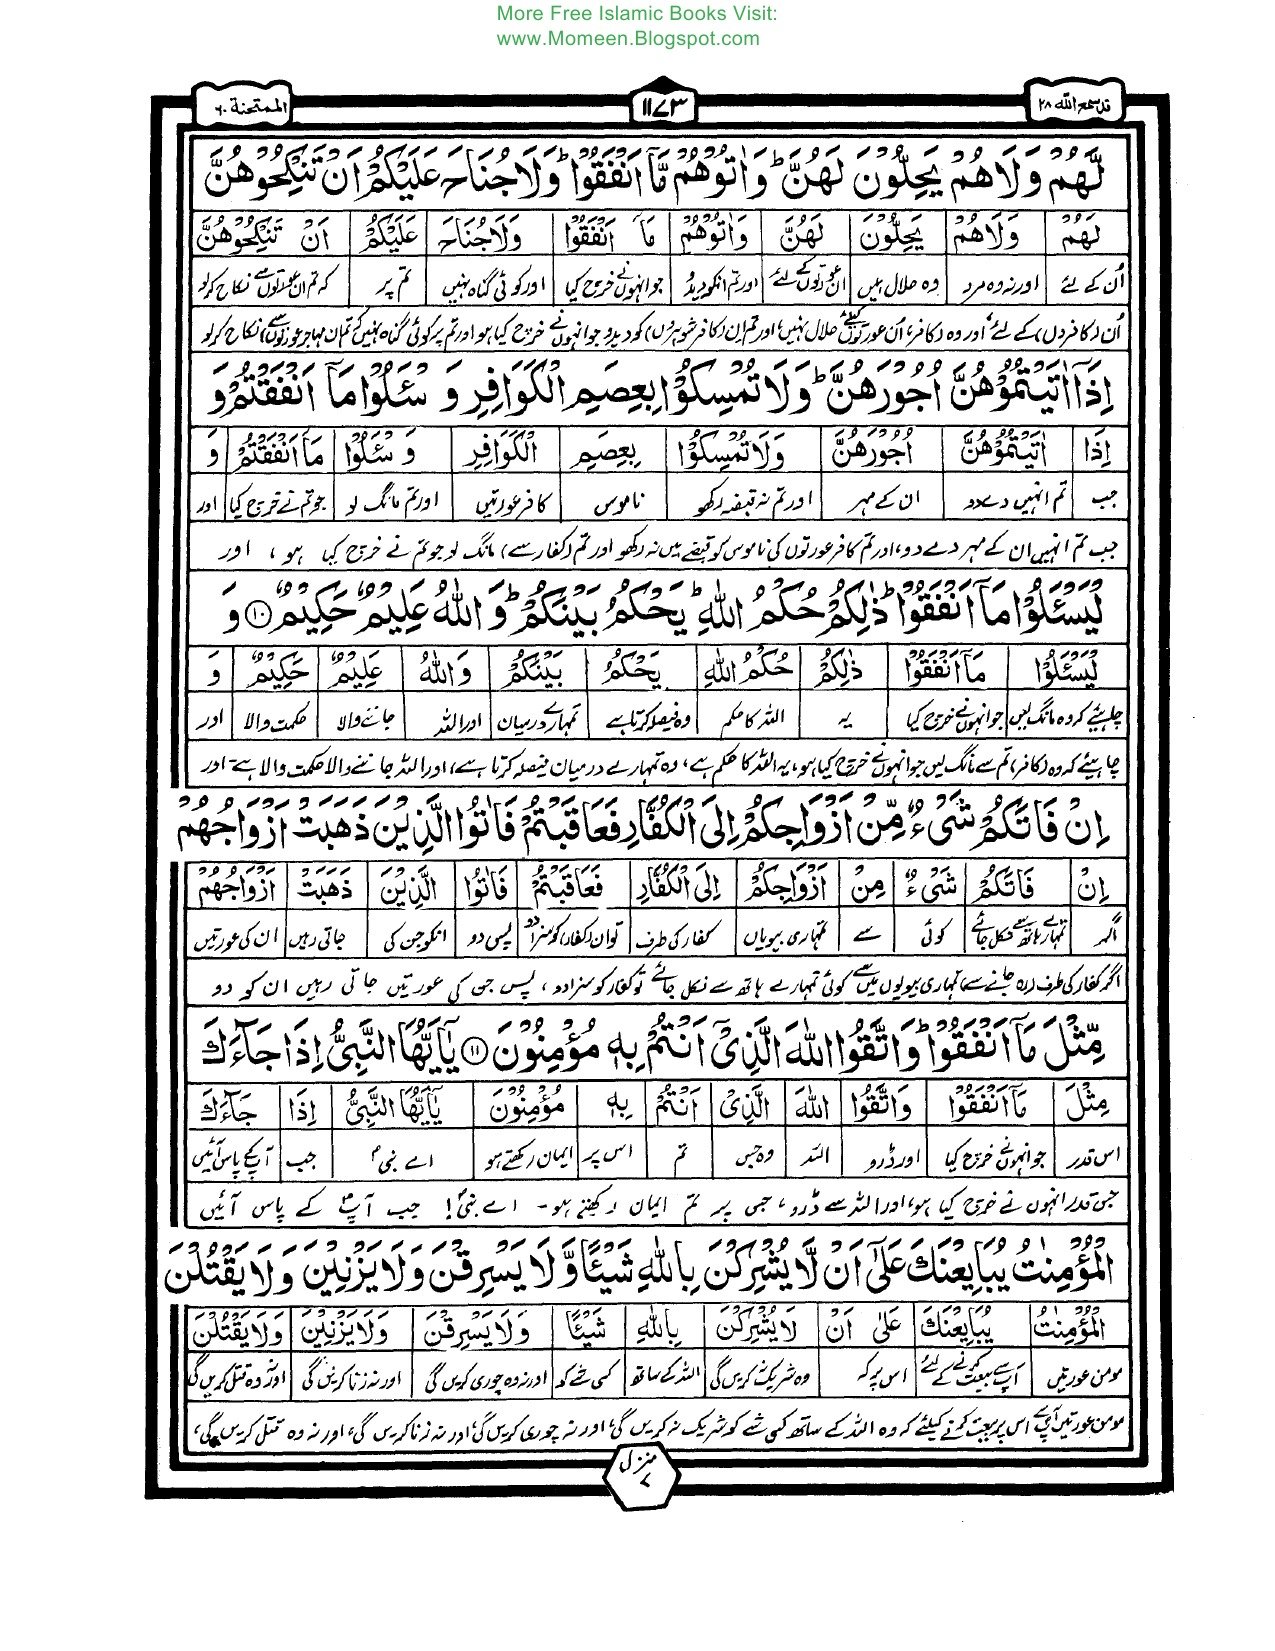 More Free Islamic Books Visit:
www.Momeen.Blogspot.com
قد سمع الله ۲۸
۱۱۷۳
الممتحنة ۶۰
لَّهُمْ وَلَا هُمْ يَحِلُّونَ لَهُنَّ ؕ وَاٰتُوْهُمْ مَّاۤ اَنْفَقُوْا ؕ وَلَا جُنَاحَ عَلَيْكُمْ اَنْ تَنْكِحُوْهُنَّ
لَهُمْ وَلَا هُمْ يَحِلُّوْنَ لَهُنَّ وَاٰتُوْهُمْ مَاۤ اَنْفَقُوْا وَلَا جُنَاحَ عَلَيْكُمْ اَنْ تَنْكِحُوْهُنَّ
اُن کے لئے اور نہ وہ مرد وہ حلال ہیں ان عورتوں کے لئے اور تم انکو دیدو جو انہوں نے خرچ کیا اور کوئی گناہ نہیں تم پر کہ تم ان عورتوں سے نکاح کرلو
اُن (کافروں) کے لئے، اور وہ (کافر) اُن عورتوں کیلئے حلال نہیں، اور تم اِن (کافر شوہروں) کو دیدو جو انہوں نے خرچ کیا ہو اور تم پر کوئی گناہ نہیں کہ تم ان مہاجر عورتوں سے) نکاح کرلو
اِذَاۤ اٰتَيْتُمُوْهُنَّ اُجُوْرَهُنَّ ؕ وَلَا تُمْسِكُوْا بِعِصَمِ الْكَوَافِرِ وَ سْئَلُوْا مَاۤ اَنْفَقْتُمْ وَ
اِذَا اٰتَيْتُمُوْهُنَّ اُجُوْرَهُنَّ وَلَا تُمْسِكُوْا بِعِصَمِ الْكَوَافِرِ وَ سْئَلُوْا مَاۤ اَنْفَقْتُمْ وَ
جب تم انہیں دے دو ان کے مہر اور تم نہ قبضہ رکھو ناموس کافر عورتیں اور تم مانگ لو جو تم نے خرچ کیا اور
جب تم انہیں ان کے مہر دے دو، اور تم کافر عورتوں کی ناموس کو قبضے میں نہ رکھو اور تم (کفار سے) مانگ لو جو تم نے خرچ کیا ہو، اور
لْيَسْئَلُوْا مَاۤ اَنْفَقُوْا ؕ ذٰلِكُمْ حُكْمُ اللّٰهِ ؕ يَحْكُمُ بَيْنَكُمْ ؕ وَ اللّٰهُ عَلِيْمٌ حَكِيْمٌ ۱۰ وَ
لْيَسْئَلُوْا مَاۤ اَنْفَقُوْا ذٰلِكُمْ حُكْمُ اللّٰهِ يَحْكُمُ بَيْنَكُمْ وَ اللّٰهُ عَلِيْمٌ حَكِيْمٌ وَ
چاہیئے کہ وہ مانگ لیں جو انہوں نے خرچ کیا یہ اللہ کا حکم وہ فیصلہ کرتا ہے تمہارے درمیان اور اللہ جاننے والا حکمت والا اور
چاہیئے کہ وہ (کافر) تم سے مانگ لیں جو انہوں نے خرچ کیا ہو، یہ اللہ کا حکم ہے، وہ تمہارے درمیان فیصلہ کرتا ہے، اور اللہ جاننے والا حکمت والا ہے۔ اور
اِنْ فَاتَكُمْ شَىْءٌ مِّنْ اَزْوَاجِكُمْ اِلَى الْكُفَّارِ فَعَاقَبْتُمْ فَاٰتُوا الَّذِيْنَ ذَهَبَتْ اَزْوَاجُهُمْ
اِنْ فَاتَكُمْ شَىْءٌ مِنْ اَزْوَاجِكُمْ اِلَى الْكُفَّارِ فَعَاقَبْتُمْ فَاٰتُوا الَّذِيْنَ ذَهَبَتْ اَزْوَاجُهُمْ
اگر تمہارے ہاتھ سے نکل جائے کوئی سے تمہاری بیویاں کفار کی طرف تو ان (کفار) کو سزا دو پس دو انکو جن کی جاتی رہیں ان کی عورتیں
اگر کفار کی طرف (رہ جانے سے) تمہاری بیویوں میں سے کوئی تمہارے ہاتھ سے نکل جائے تو کفار کو سزا دو، پس جن کی عورتیں جاتی رہیں ان کو دو
مِّثْلَ مَاۤ اَنْفَقُوْا ؕ وَاتَّقُوا اللّٰهَ الَّذِىْۤ اَنْتُمْ بِهٖ مُؤْمِنُوْنَ ۱۱ يٰۤاَيُّهَا النَّبِىُّ اِذَا جَآءَكَ
مِثْلَ مَاۤ اَنْفَقُوْا وَاتَّقُوا اللّٰهَ الَّذِىْ اَنْتُمْ بِهٖ مُؤْمِنُوْنَ يٰۤاَيُّهَا النَّبِىُّ اِذَا جَآءَكَ
اس قدر جو انہوں نے خرچ کیا اور ڈرو اللہ وہ جس تم اس پر ایمان رکھتے ہو اے نبیؐ جب آپکے پاس آئیں
جس قدر انہوں نے خرچ کیا ہو، اور اللہ سے ڈرو، جس پر تم ایمان رکھتے ہو۔ اے نبیؐ! جب آپؐ کے پاس آئیں
الْمُؤْمِنٰتُ يُبَايِعْنَكَ عَلٰۤى اَنْ لَّا يُشْرِكْنَ بِاللّٰهِ شَيْئًا وَّلَا يَسْرِقْنَ وَلَا يَزْنِيْنَ وَلَا يَقْتُلْنَ
الْمُؤْمِنٰتُ يُبَايِعْنَكَ عَلٰۤى اَنْ لَا يُشْرِكْنَ بِاللّٰهِ شَيْئًا وَلَا يَسْرِقْنَ وَلَا يَزْنِيْنَ وَلَا يَقْتُلْنَ
مومن عورتیں آپ سے بیعت کرنے کے لئے اس پر کہ وہ شریک نہ کریں گی اللہ کے ساتھ کسی شے کو اور نہ وہ چوری کریں گی اور نہ زنا کریں گی اور نہ وہ قتل کریں گی
مومن عورتیں آپؐ سے اس پر بیعت کرنے کیلئے کہ وہ اللہ کے ساتھ کسی شے کو شریک نہ کریں گی، اور نہ چوری کریں گی، اور نہ زنا کریں گی، اور نہ وہ قتل کریں گی،
منزل ۷